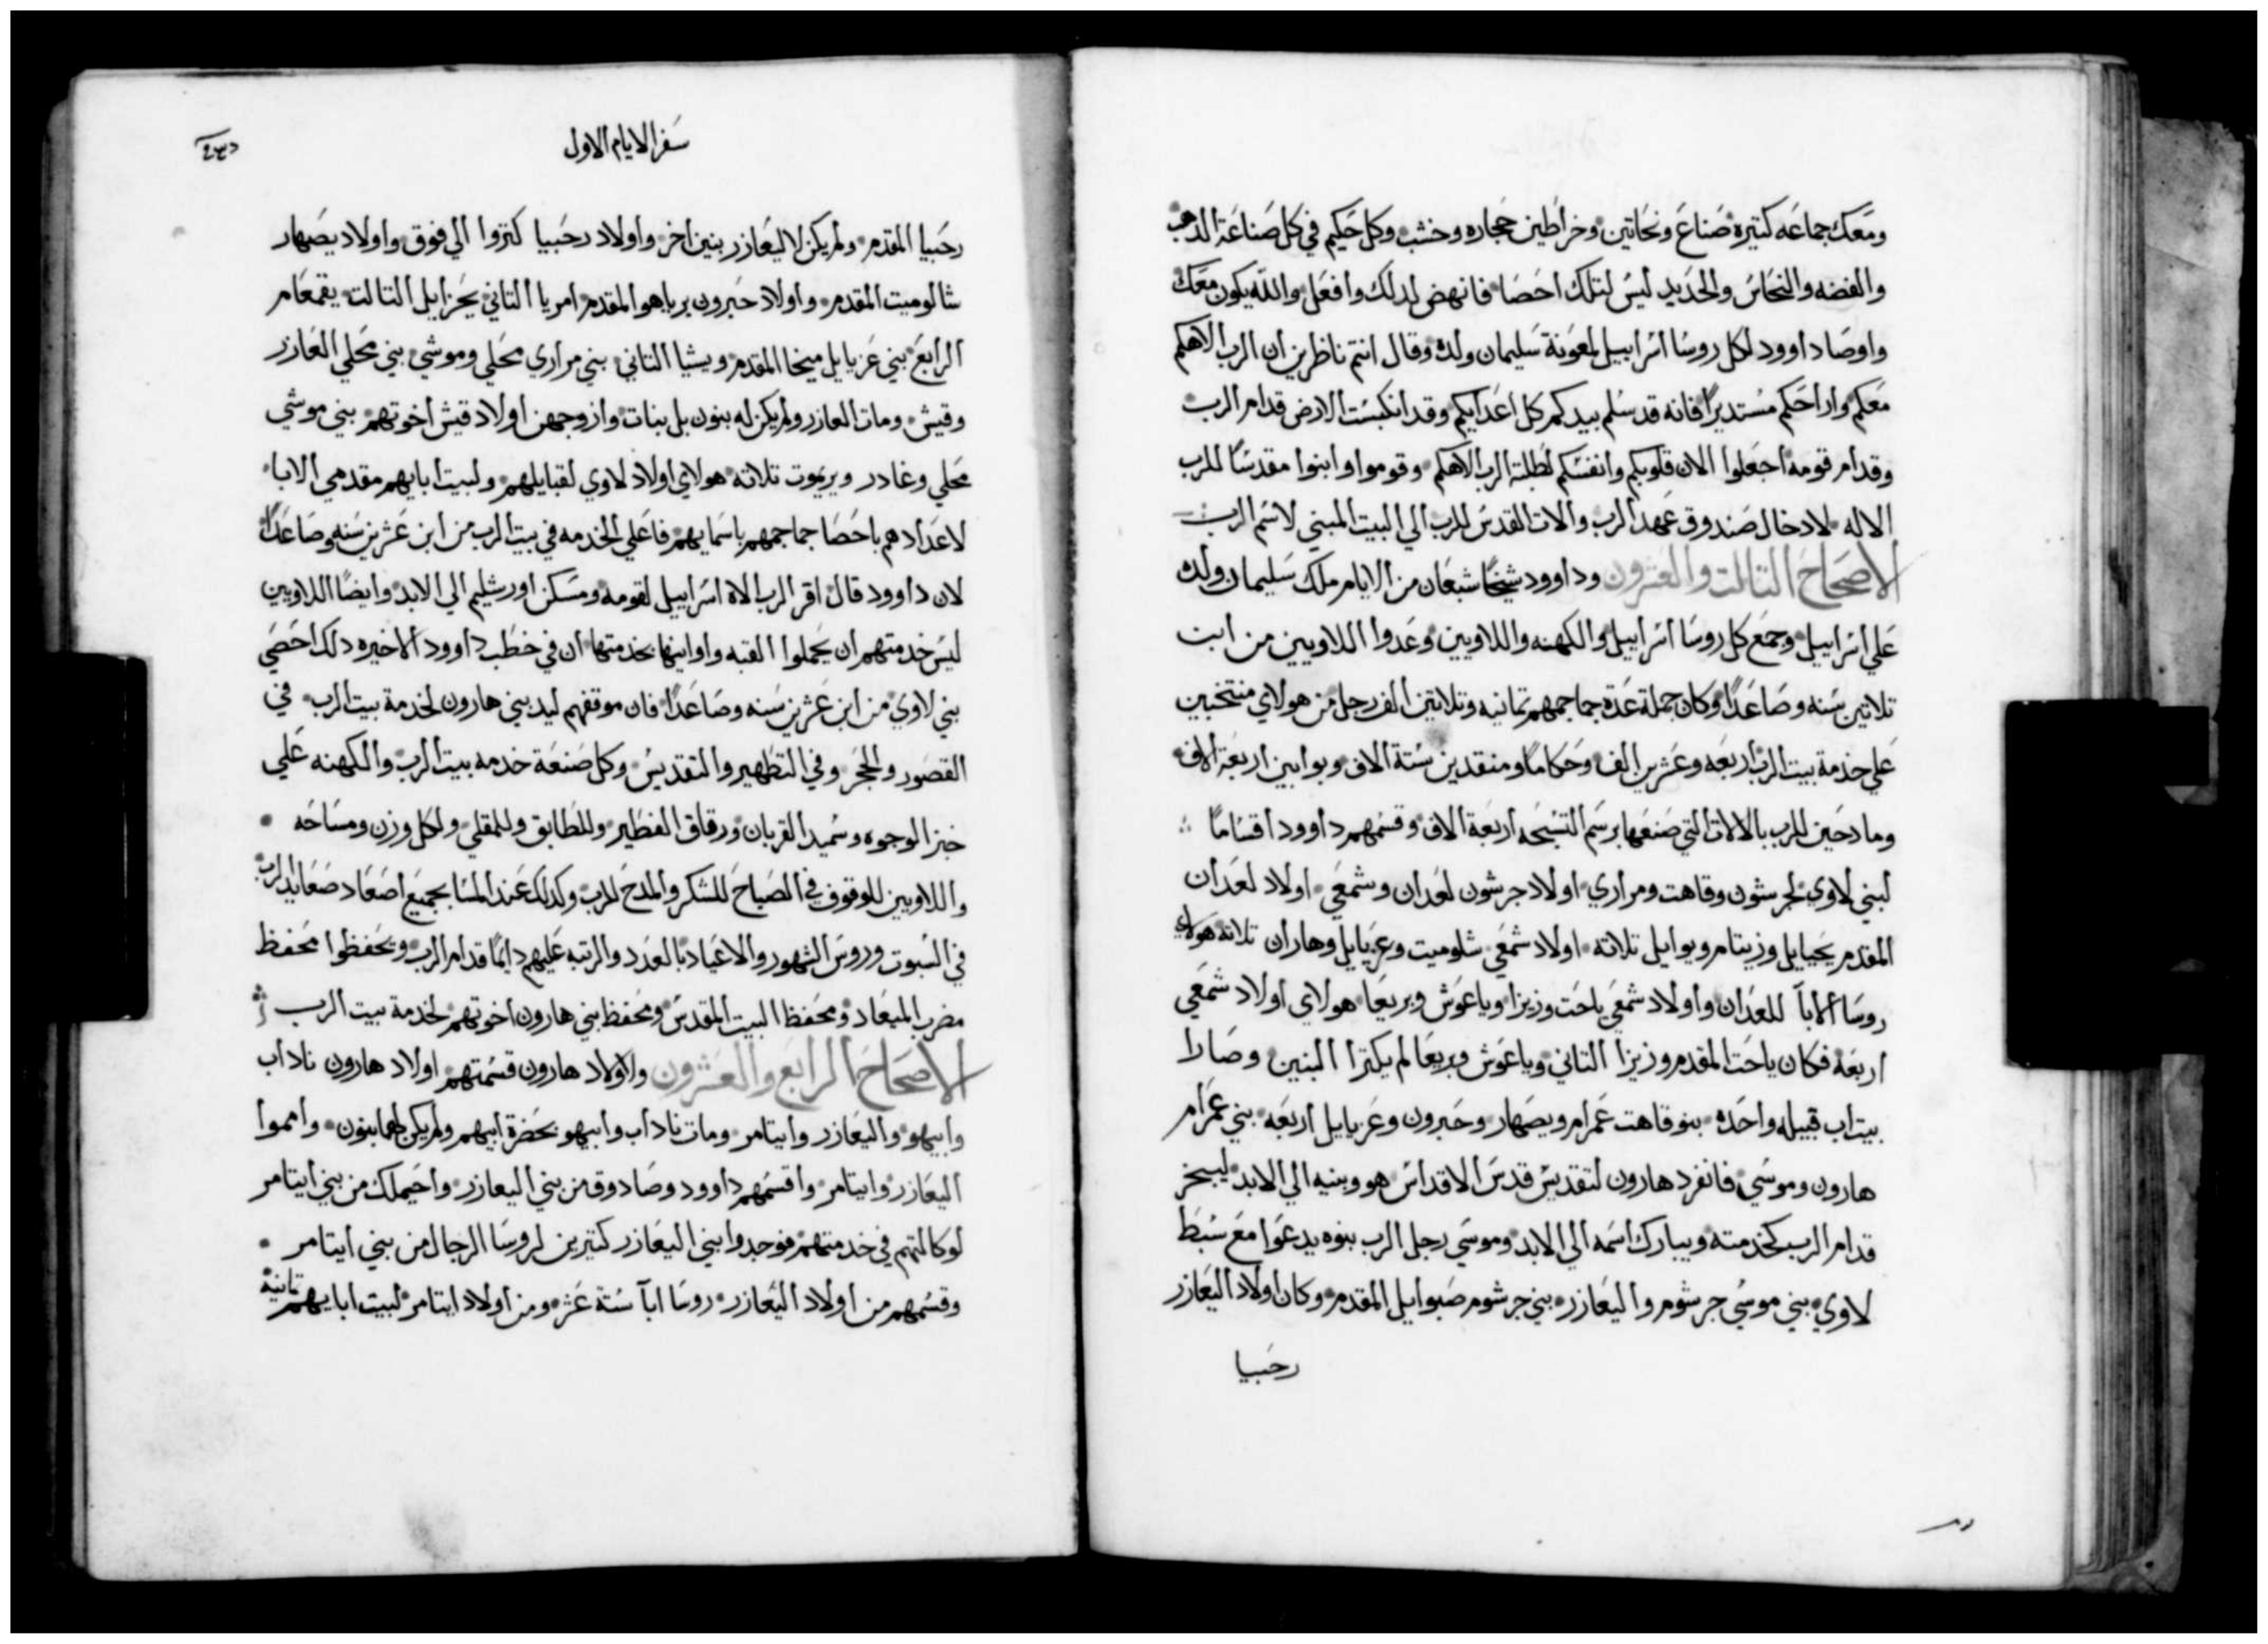 ومعك جماعه كتيرة صناع ونحاتين وخراطين حجاره وخشب وكل حكيم في كل صناعة الدهب
والفضه والنحاس والحديد ليس لتلك احصا فانهض لدلك وافعل والله يكون معك
واوصا داوود لكل روسا اسراييل لمعونة سليمان ولده وقال انتم ناظرين ان الرب الاهكم
معكم واراحكم مستديرًا فانه قد سلم بيدكم كل اعدايكم وقد انكبست الارض قدام الرب
وقدام قومه اجعلوا الان قلوبكم وانفسكم لطلبة الرب الاهكم وقوموا وابنوا مقدسًا للرب
الاله لادخال صندوق عهد الرب والات القدس للرب الي البيت المبني لاسم الرب
الاصحاح التالت والعشرون وداوود شيخًا شبعان من الايام ملك سليمان ولده
علي اسراييل وجمع كل روسا اسراييل والكهنه واللاويين وعدوا اللاويين من ابن
تلاتين سنه وصاعدًا وكان جملة عدة جماجمهم تمانيه وتلاتين الف رجل من هولاي منتخبين
علي خدمة بيت الرب اربعه وعشرين الف وحكامًا ومنقدين ستة الاف وبوابين اربعة الاف
ومادحين للرب بالالات التي صنعها برسم التسبحه اربعة الاف وقسمهم داوود اقسامًا
لبني لاوي لجرشون وقاهت ومراري اولاد جرشون لعدان وشمعي اولاد لعدان
المقدم يحيايل وزيتام ويوايل تلاته اولاد شمعي شلوميت وعزيايل وهاران تلاته هولاي
روسا الابا للعدان واولاد شمعي ياحت وزيزا وياعوش وبريعا هولاي اولاد شمعي
اربعه فكان ياحت المقدم وزيزا التاني وياعوش وبريعا لم يكترا البنين وصارا
بيت اب قبيله واحده بنو قاهت عمرام ويصهار وحبرون وعزيايل اربعه بني عمرام
هارون وموسي فانفرد هارون لتقديس قدس الاقداس هو وبنيه الي الابد ليبخر
قدام الرب كخدمته ويبارك اسمه الي الابد وموسي رجل الرب بنوه يدعوا مع سبط
لاوي بني موسي جرشوم واليعازر بني جرشوم صبوايل المقدم وكان اولاد اليعازر
رحبيا
سفر الايام الاول
رحبيا المقدم ولم يكن لاليعازر بنين اخر واولاد رحبيا كتروا الي فوق واولاد يصهار
شالوميت المقدم واولاد حبرون يرياهو المقدم امريا التاني يحزايل التالت يقمعام
الرابع بني عزيايل ميخا المقدم ويشيا التاني بني مراري محلي وموشي بني محلي العازر
وقيش ومات العازر ولم يكن له بنون بل بنات وازوجهن اولاد قيش اخوتهم بني موشي
محلي وغادر ويريموت تلاته هولاي اولاد لاوي لقبايلهم ولبيت ابايهم مقدمي الابا
لاعدادهم باحصا جماجمهم باسمايهم فاعلي الخدمه في بيت الرب من ابن عشرين سنه وصاعدًا
لان داوود قال اقر الرب الاه اسراييل لقومه ومسكن اورشليم الي الابد وايضًا اللاويين
ليس خدمتهم ان يحملوا القبه واوانيها بخدمتها ان في خطب داوود الاخيره دلك احصي
بني لاوي من ابن عشرين سنه وصاعدًا فان موقفهم ليد بني هارون لخدمة بيت الرب في
القصور والحجر وفي التطهير والتقديس وكل صنعة خدمه بيت الرب والكهنه علي
خبز الوجوه وسميد القربان ورقاق الفطير وللطابق وللمقلي ولكل وزن ومساحه
واللاويين للوقوف في الصباح للشكر والمدح للرب وكدلك عند المسا بجميع اصعاد صعايد للرب
في السبوت وروس الشهور والاعياد بالعدد والرتبه عليهم دايمًا قدام الرب ويحفظوا محفظ
مضرب الميعاد ومحفظ البيت المقدس ومحفظ بني هارون اخوتهم لخدمة بيت الرب
الاصحاح الرابع والعشرون ولاولاد هارون قسمتهم اولاد هارون ناداب
وابيهو واليعازر وايتامر ومات ناداب وابيهو بحضرة ابيهم ولم يكن لهما بنون وامموا
اليعازر وايتامر واقسمهم داوود وصادوق من بني اليعازر واحيملك من بني ايتامر
لوكالتهم في خدمتهم فوجدوا بني اليعازر كتيرين لروسا الرجال من بني ايتامر
وقسمهم من اولاد اليعازر روسا ابآ ستة عشر ومن اولاد ايتامر لبيت ابايهم تمانية